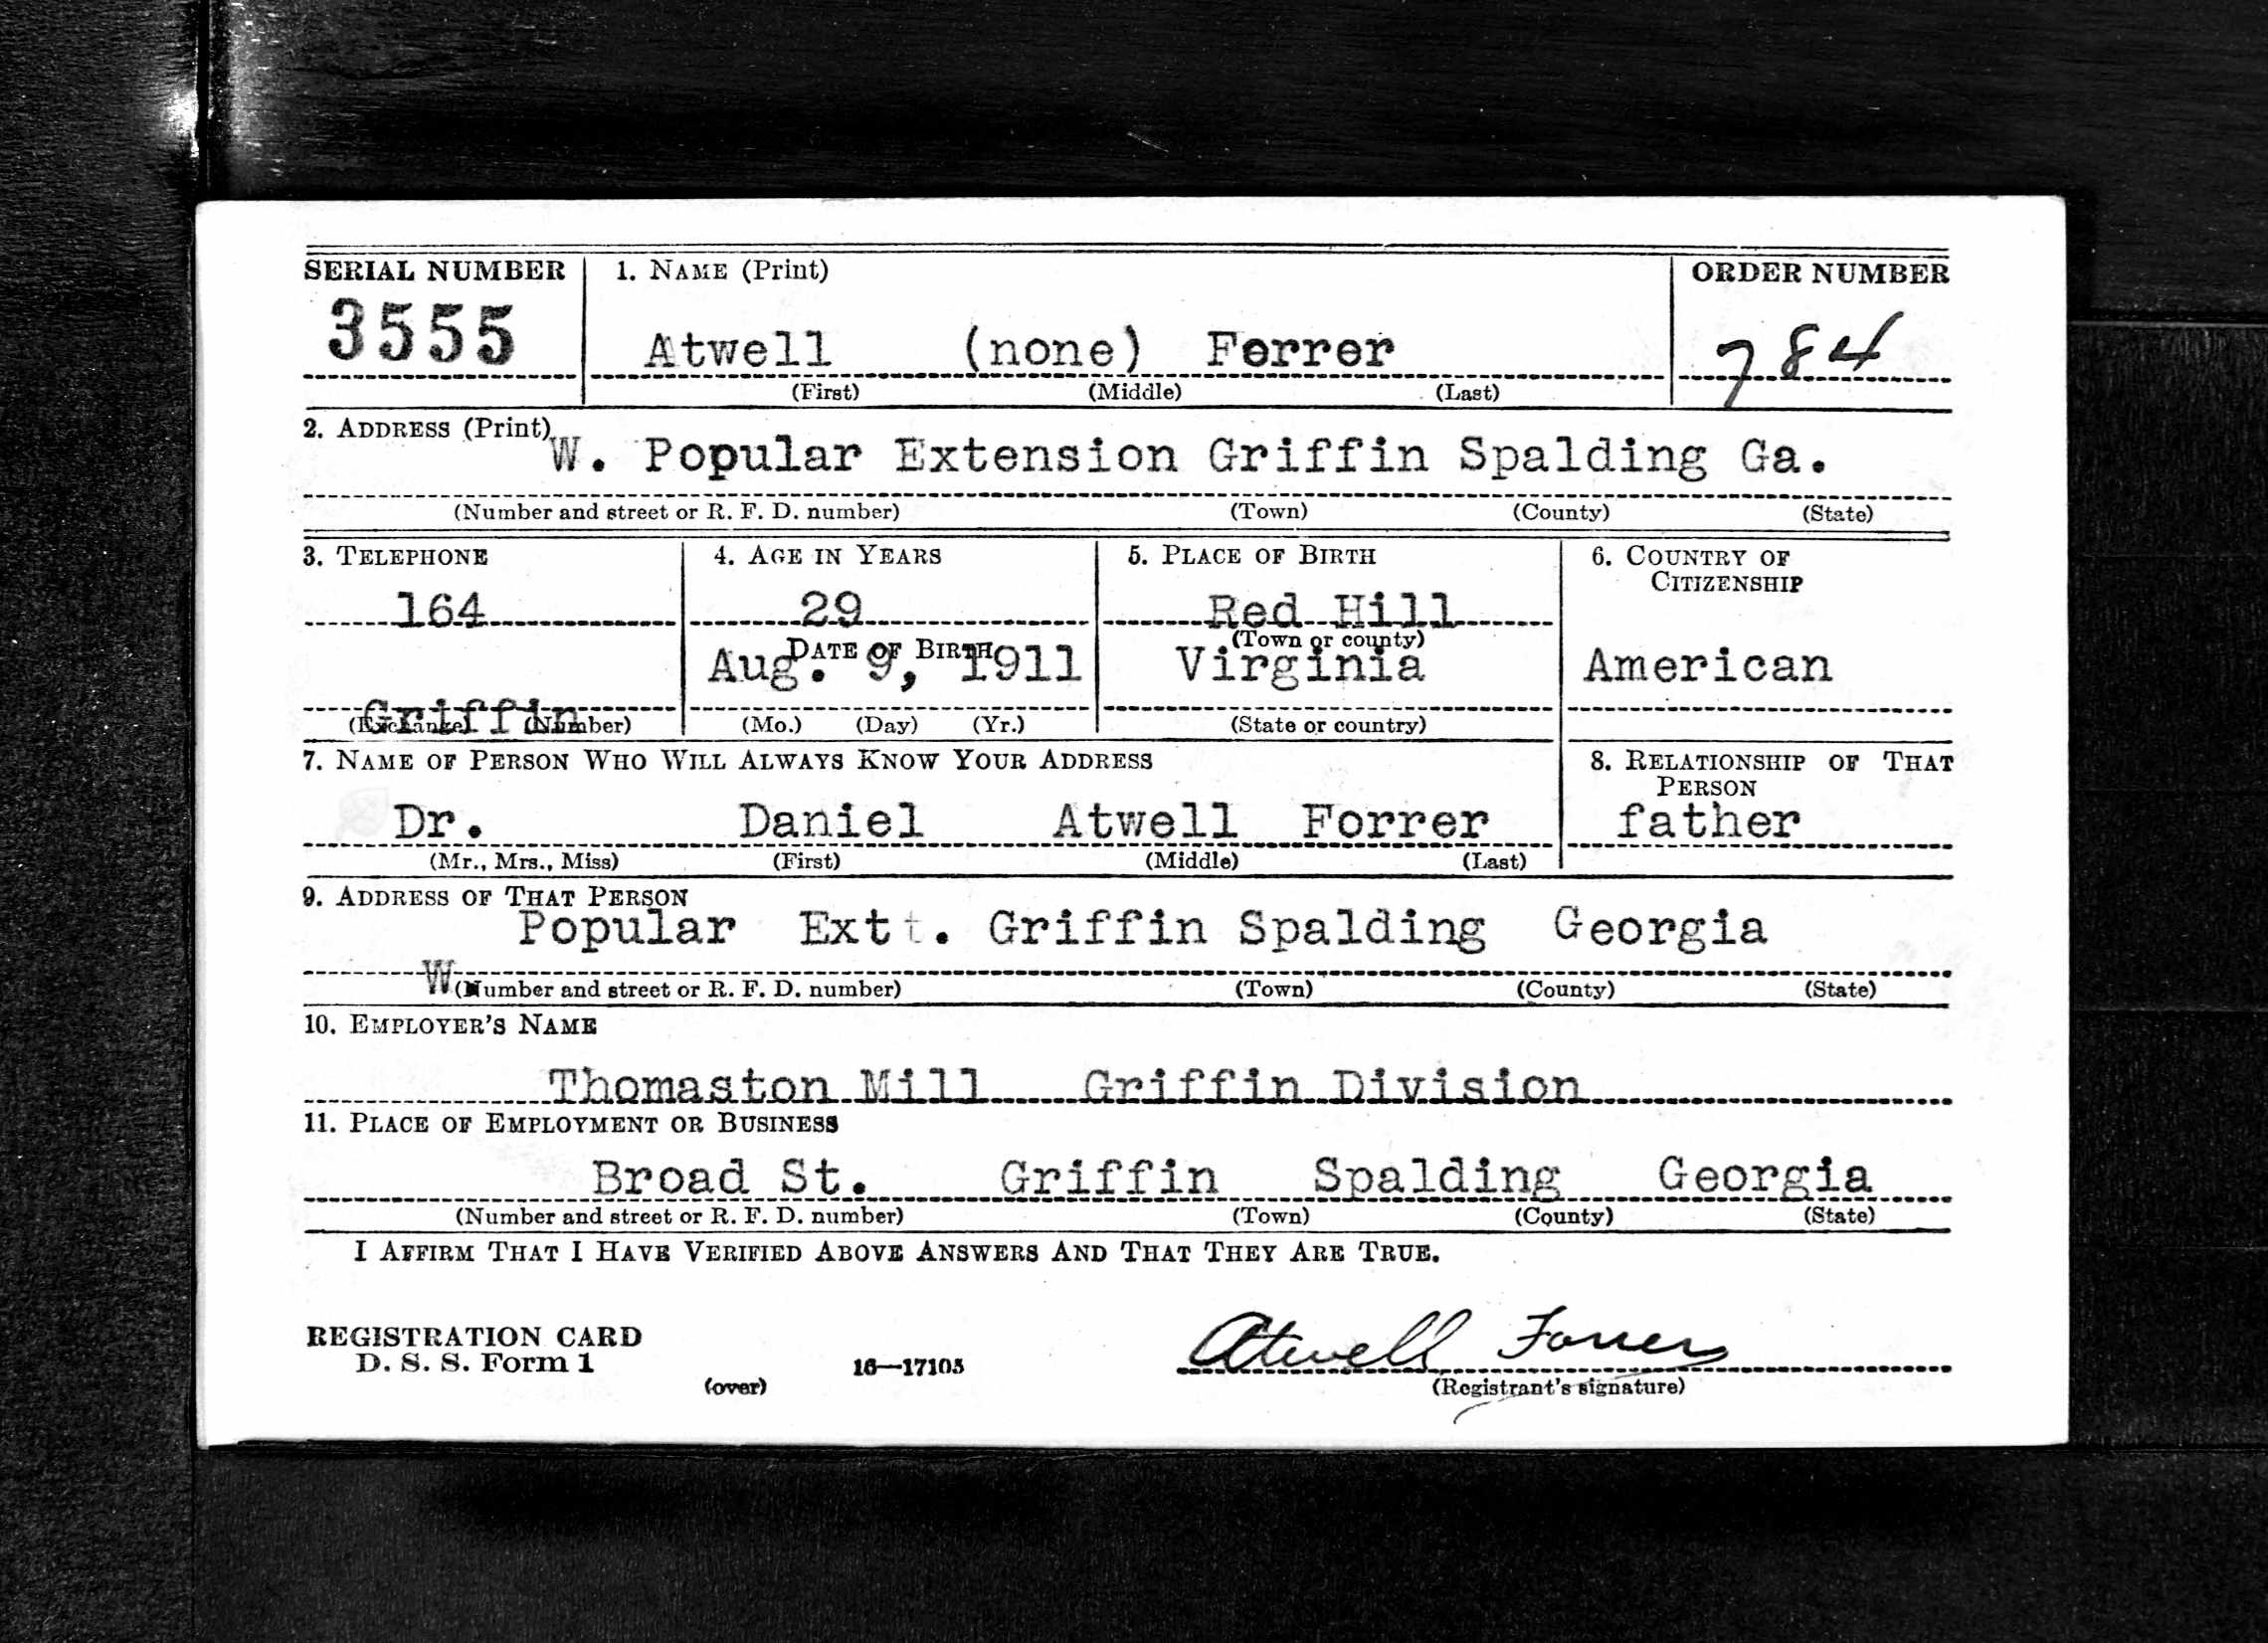 SERIAL NUMBER 1. NAME (Print) ORDER NUMBER
3555 Atwell (none) Forrer 784
(First) (Middle) (Last)
2. ADDRESS (Print)
W. Popular Extension Griffin Spalding Ga.
(Number and street or R. F. D. number) (Town) (County) (State)
3. TELEPHONE 4. AGE IN YEARS 5. PLACE OF BIRTH 6. COUNTRY OF
CITIZENSHIP
164 29 Red Hill
DATE OF BIRTH (Town or county)
Aug. 9, 1911 Virginia American
Griffin
(Exchange) (Number) (Mo.) (Day) (Yr.) (State or country)
7. NAME OF PERSON WHO WILL ALWAYS KNOW YOUR ADDRESS 8. RELATIONSHIP OF THAT
PERSON
Dr. Daniel Atwell Forrer father
(Mr., Mrs., Miss) (First) (Middle) (Last)
9. ADDRESS OF THAT PERSON
Popular Extt. Griffin Spalding Georgia
W
(Number and street or R. F. D. number) (Town) (County) (State)
10. EMPLOYER'S NAME
Thomaston Mill Griffin Division
11. PLACE OF EMPLOYMENT OR BUSINESS
Broad St. Griffin Spalding Georgia
(Number and street or R. F. D. number) (Town) (County) (State)
I AFFIRM THAT I HAVE VERIFIED ABOVE ANSWERS AND THAT THEY ARE TRUE.
REGISTRATION CARD
D. S. S. Form 1 16—17105 Atwell Forrer
(over) (Registrant's signature)